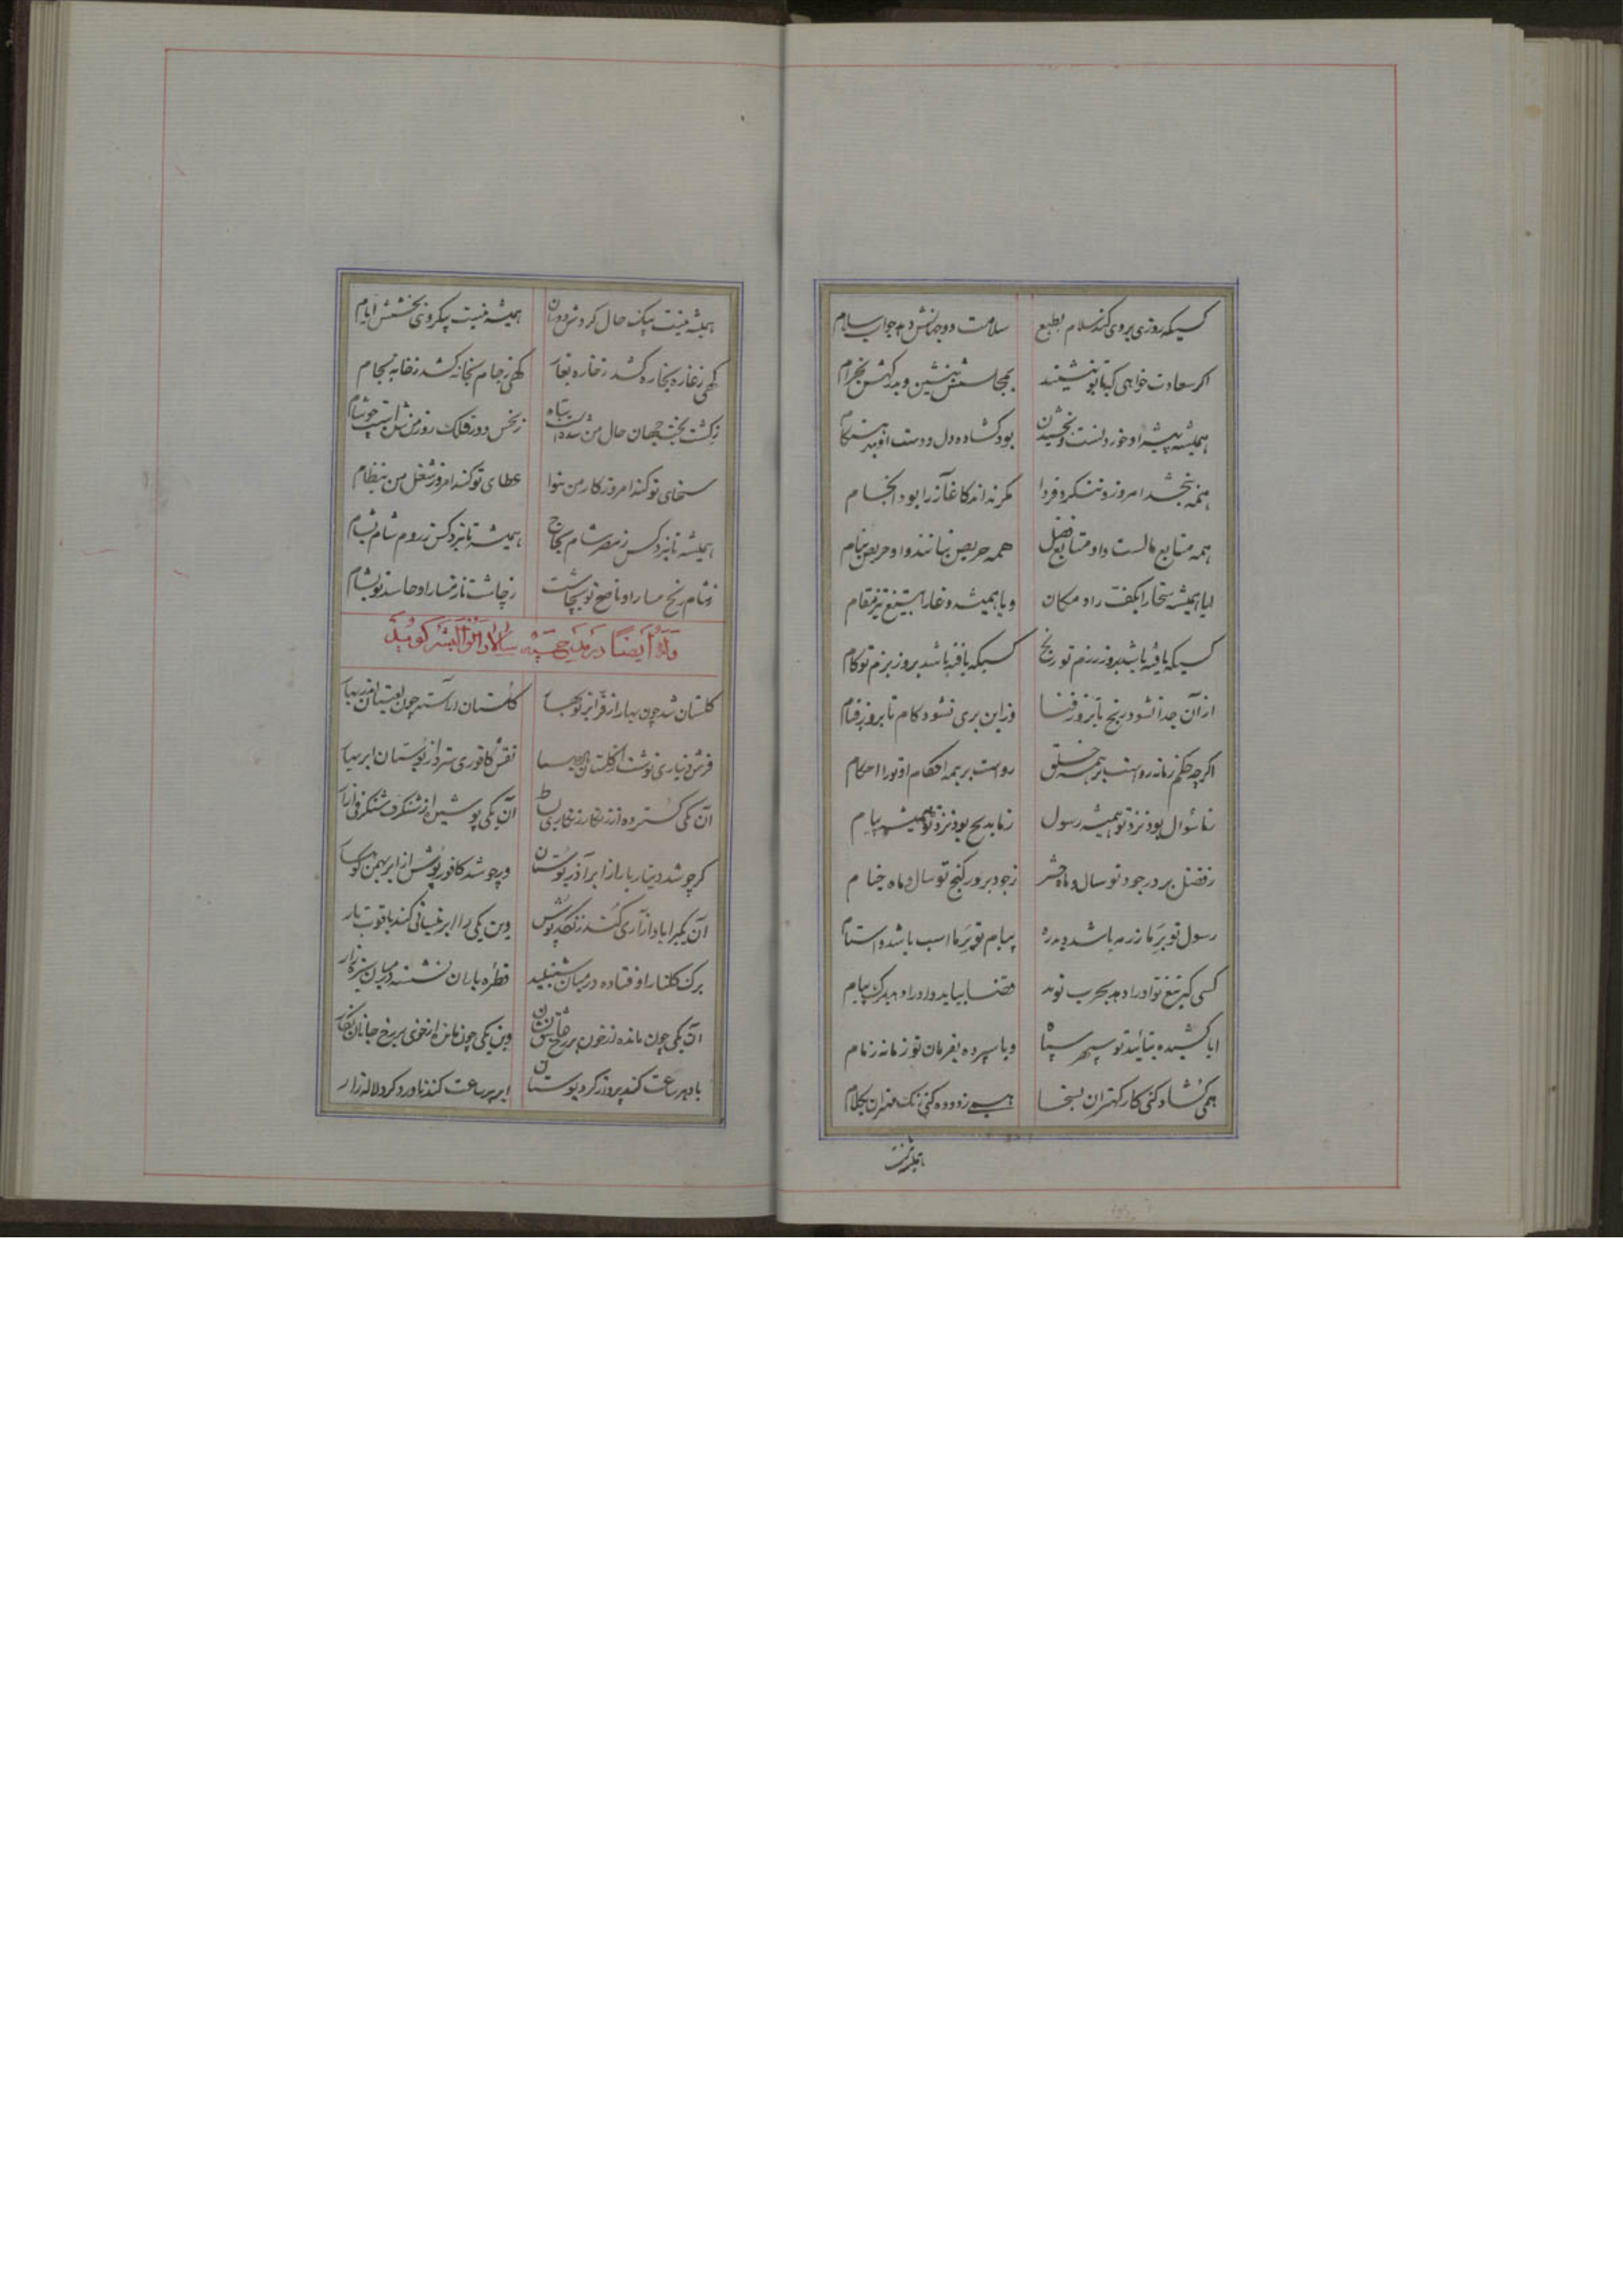 کسیکه روزی بروی کند سلام بطبع سلامت دو جهانش دهد جواب سلام
اگر سعادت خواهی که با تو بنشیند بمجلسش بنشین و بدرگهش بخرام
همیشه پیشه او خوردنست و بخشیدن بود گشاده دل و دست او
همه ببخشد امروز و ننگرد فردا مگر نداند کاغاز را بود انجام
همه متابع مالست و او متابع فضل همه حریص بنانند و او حریص بنام
ایا همیشه سخا را بکفت راد مکان و یا همیشه وغا را بتیغ تیز مقام
کسیکه یافته باشد بروز رزم تو رنج کسیکه یافته باشد بروز بزم تو کام
از آن جدا نشود رنج تا بروز فنا وزاین بری نشود کام تا بروز قیام
اگر چه حکم زمانه رواست بر همه خلق رواست بر همه احکام او ترا احکام
زما سؤال بود نزد تو همیشه رسول زما مدیح بود نزد تو همیشه پیام
ز فضل بر در جود تو سال و ماه حشر ز جود بر در گنج تو سال و ماه خیام
رسول تو بر ما زر باشد و بدره پیام تو بر ما اسب باشد و استام
کسی که تیغ تو او را دهد بحرب نوید قضا بیاید و او را دهد بمرگ پیام
ایا کشیده بتائید تو سپهر سپاه و یا سپرده بفرمان تو زمانه زمام
همی گشاده کنی کار کهتران بسخا همی زدوده کنی زنگ مهتران بکلام
همیشه نیست
همیشه نیست بیک حال گردش دوران همیشه نیست بیکروی بخشش ایام
گهی ز غاره بخاره کشد ز خاره بغار گهی ز جام بخانه کشد ز خانه بجام
ز گشت بخت جهان حال من شده است تباه ز نحس دور فلک روز من شده است چو شام
سخای تو کند امروز کار من بنوا عطای تو کند امروز شغل من بنظام
همیشه تا نبرد کس ز مصر شام بچاج همیشه تا نبرد کس ز روم شام بشام
ز شام رنج مباد او ناصح تو بچاشت ز چاشت ناز مباد او حاسد تو بشام
وله ایضا در مدح جستان سالار ابوالبشر گوید
گلستان شد چون بهار از فر ابر نوبهار گلستان آراسته چون لعبتان اندر بهار
فرش دیناری نوشت از گلستان نقش کافوری سترد از بوستان ابر بهار
آن یکی گسترده از زنگار زنگاری بساط آن یکی پوشیده از شنگرف شنگرفی ازار
گر چو شد دینار بار از ابر آذر بوستان ور چو شد کافورپوش از ابر بهمن کوهسار
آن یکی را باد آزاری کند زنگارپوش وین یکی را ابر نیسانی کند یاقوت بار
برگ گلنار اوفتاده در میان شنبلید قطره باران نشسته در میان سبزه زار
آن یکی چون مانده از خون بر رخ عاشق نشان وین یکی چون مانده از خوی بر رخ جانان نگار
باد هر ساعت کند پرواز گرد بوستان ابر هر ساعت کند ناورد گرد لاله زار